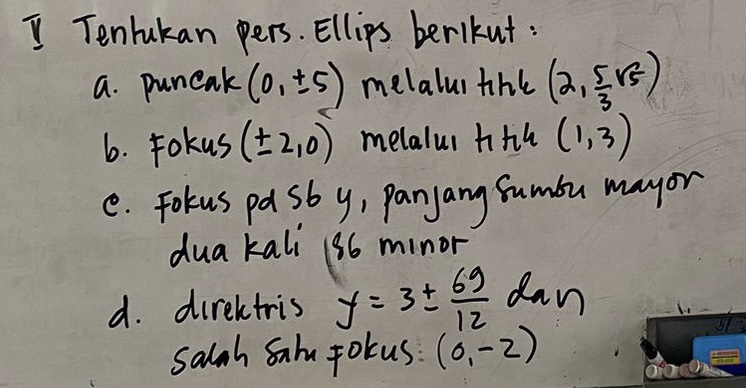 V Tentukan pers. Ellips berikut :
a. puncak (0, ±5) melalui titik (2, 5/3 √5)
b. Fokus (±2,0) melalui titik (1,3)
c. Fokus pd sb y, panjang sumbu mayor
dua kali sb minor
d. direktris y = 3 ± 69/12 dan
salah satu fokus: (0,-2)